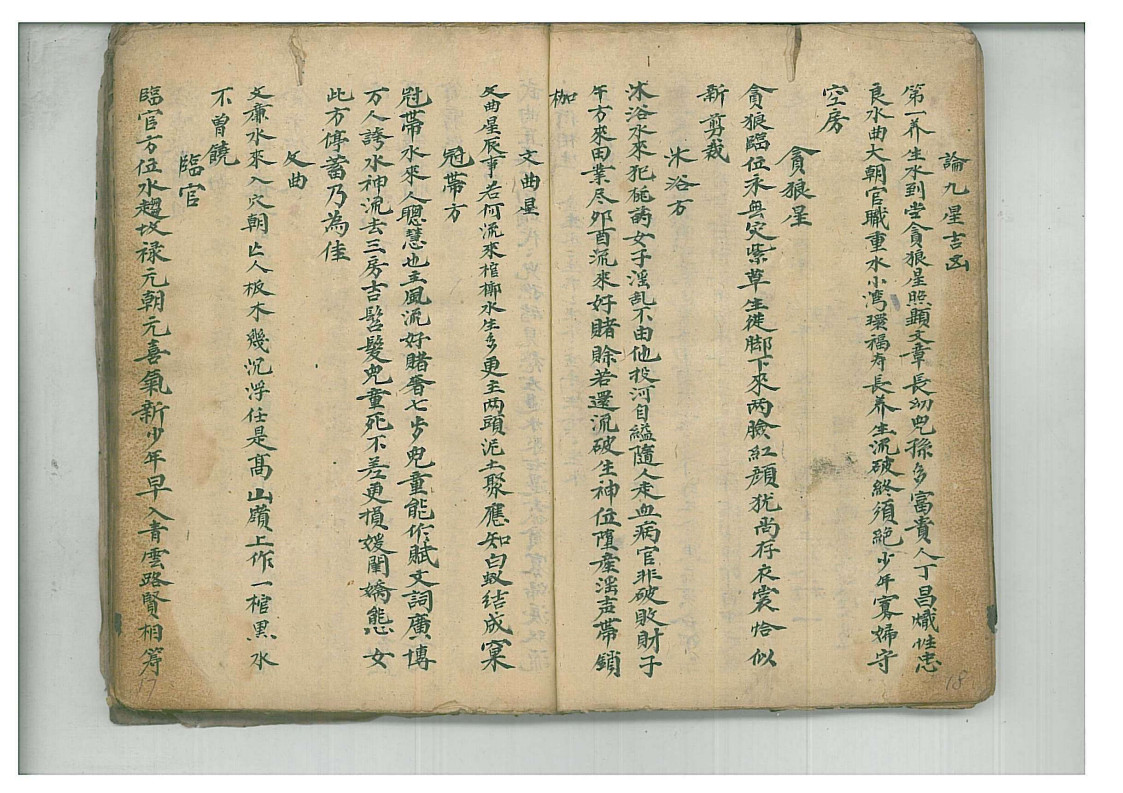 18
論九星吉凶
第一养生水到堂貪狼星照顯文章長幼兒孫多富貴人丁昌熾性忠
良水曲大朝官職重水小湾環福寿長养生流破終須絶少年寡婦守
空房
貪狼星
貪狼臨位永無災紫草生從脚下來两臉紅顔犹尚存衣裳恰似
新剪裁
沐浴方
沐浴水來犯桃花女子淫乱不由他投河自縊隨人走血病官非破敗財子
午方來田業尽夘酉流來好賭賒若還流破生神位堕産淫声帶鎖
枷
文曲星
文曲星辰事若何流來棺槨水生多更主两頭泥土聚應知白蚁结成窠
冠帶方
冠帶水來人聰慧也主風流好賭奢七步兒童能作賦文詞廣博
万人誇水神流去三房吉髫髮兒童死不差更損媛闈嬌態女
此方停蓄乃為佳
文曲
文廉水來入穴朝亡人板木幾沉浮任是髙山嶺上作一棺黒水
不曽饒
臨官
臨官方位水趨坟禄元朝元喜氣新少年早入青雲路賢相筹
17